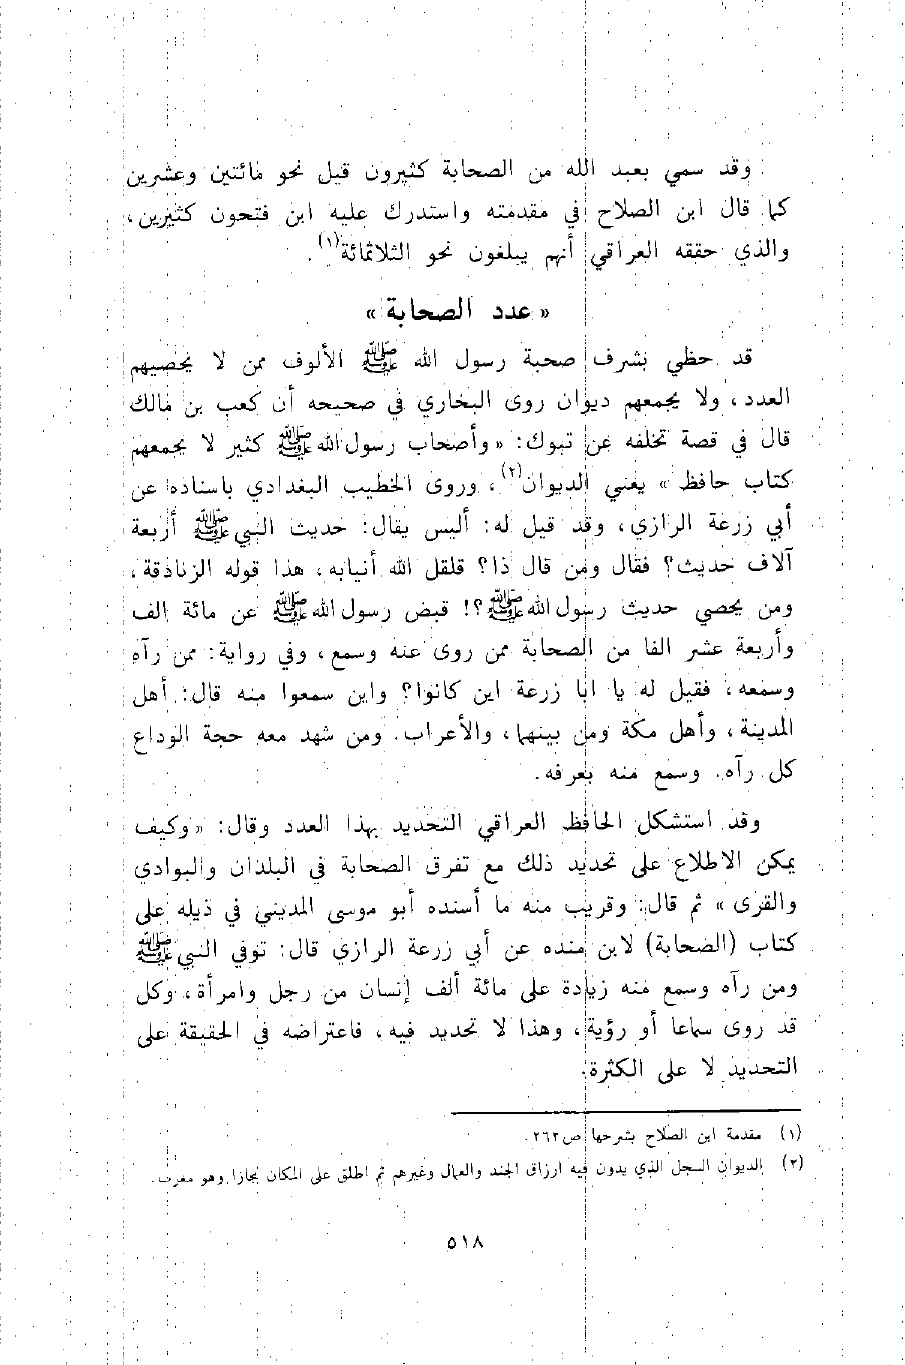 وقد سمي بعبد الله من الصحابة كثيرون قيل نحو مائتين وعشرين
كما قال ابن الصلاح في مقدمته واستدرك عليه ابن فتحون كثيرين،
والذي حققه العراقي أنهم يبلغون نحو الثلاثمائة(١).
« عدد الصحابة »
قد حظي بشرف صحبة رسول الله ﷺ الألوف ممن لا يحصيهم
العدد، ولا يجمعهم ديوان روى البخاري في صحيحه أن كعب بن مالك
قال في قصة تخلفه عن تبوك: « وأصحاب رسول الله ﷺ كثير لا يجمعهم
كتاب حافظ » يعني الديوان(٢)، وروى الخطيب البغدادي باسناده عن
أبي زرعة الرازي، وقد قيل له: أليس يقال: حديث النبي ﷺ أربعة
آلاف حديث؟ فقال ومن قال ذا؟ قلقل الله أنيابه، هذا قوله الزنادقة،
ومن يحصي حديث رسول الله ﷺ؟! قبض رسول الله ﷺ عن مائة الف
وأربعة عشر الفا من الصحابة ممن روى عنه وسمع، وفي رواية: ممن رآه
وسمعه، فقيل له يا ابا زرعة اين كانوا؟ واين سمعوا منه قال: أهل
المدينة، وأهل مكة ومن بينهما، والأعراب. ومن شهد معه حجة الوداع
كل رآه. وسمع منه بعرفه.
وقد استشكل الحافظ العراقي التحديد بهذا العدد وقال: « وكيف
يمكن الاطلاع على تحديد ذلك مع تفرق الصحابة في البلدان والبوادي
والقرى » ثم قال: وقريب منه ما أسنده أبو موسى المديني في ذيله على
كتاب (الصحابة) لابن منده عن أبي زرعة الرازي قال: توفي النبي ﷺ
ومن رآه وسمع منه زيادة على مائة ألف إنسان من رجل وامرأة، وكل
قد روى سماعا أو رؤية، وهذا لا تحديد فيه، فاعتراضه في الحقيقة على
التحديد لا على الكثرة.
(١) مقدمة ابن الصلاح بشرحها ص٢٦٢.
(٢) الديوان السجل الذي يدون فيه ارزاق الجند والعمال وغيرهم ثم اطلق على المكان مجازا وهو معرب.
٥١٨